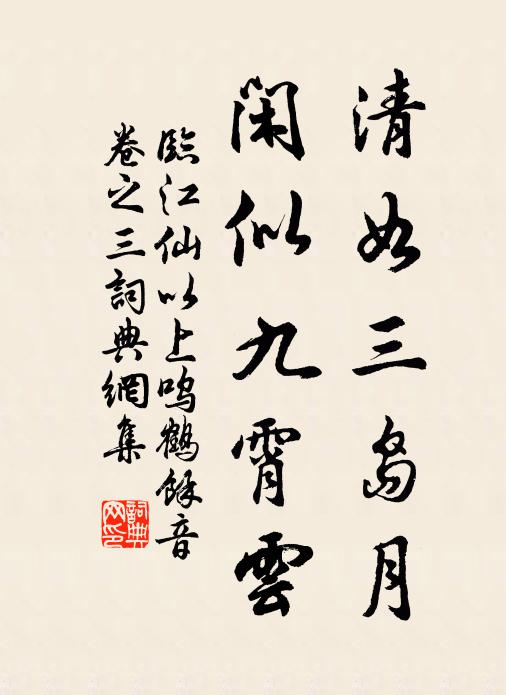 清如三島月
閑似九霄雲
臨江仙以上鳴鶴餘音
卷之三詞典網集
詞典
网印